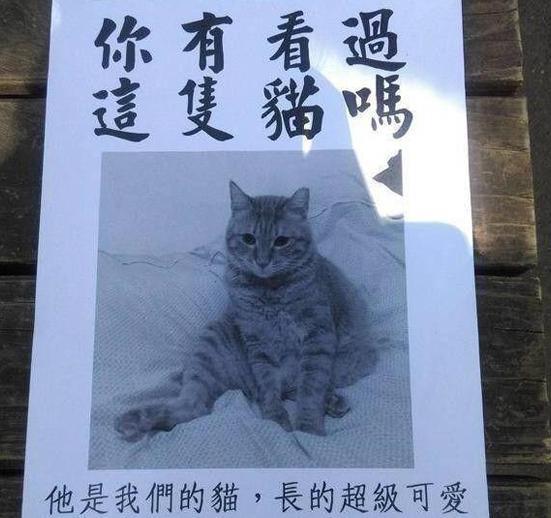 你有看過
這隻貓嗎
他是我們的貓，長的超級可愛